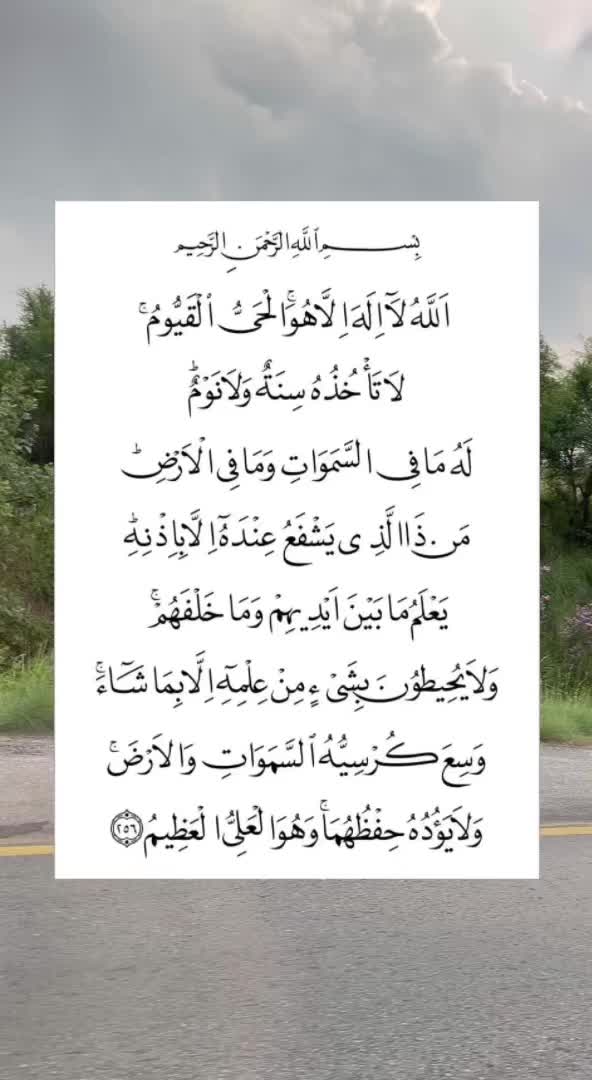 بِسْمِ اللَّهِ الرَّحْمَنِ الرَّحِيمِ
اَللَّهُ لَآ اِلَهَ اِلَّا هُوَۚ اَلْحَيُّ الْقَيُّومُۚ
لَا تَأْخُذُهُ سِنَةٌ وَلَا نَوْمٌۜ
لَهُ مَا فِي السَّمَوَاتِ وَمَا فِي الْاَرْضِۜ
مَنْ ذَا الَّذِي يَشْفَعُ عِنْدَهُٓ اِلَّا بِاِذْنِهِۜ
يَعْلَمُ مَا بَيْنَ اَيْدِيهِمْ وَمَا خَلْفَهُمْۚ
وَلَا يُحِيطُونَ بِشَيْءٍ مِنْ عِلْمِهِٓ اِلَّا بِمَا شَآءَۚ
وَسِعَ كُرْسِيُّهُ السَّمَوَاتِ وَالْاَرْضَۚ
وَلَا يَؤُدُهُ حِفْظُهُمَاۚ وَهُوَ الْعَلِيُّ الْعَظِيمُ ﴿٢٥٦﴾